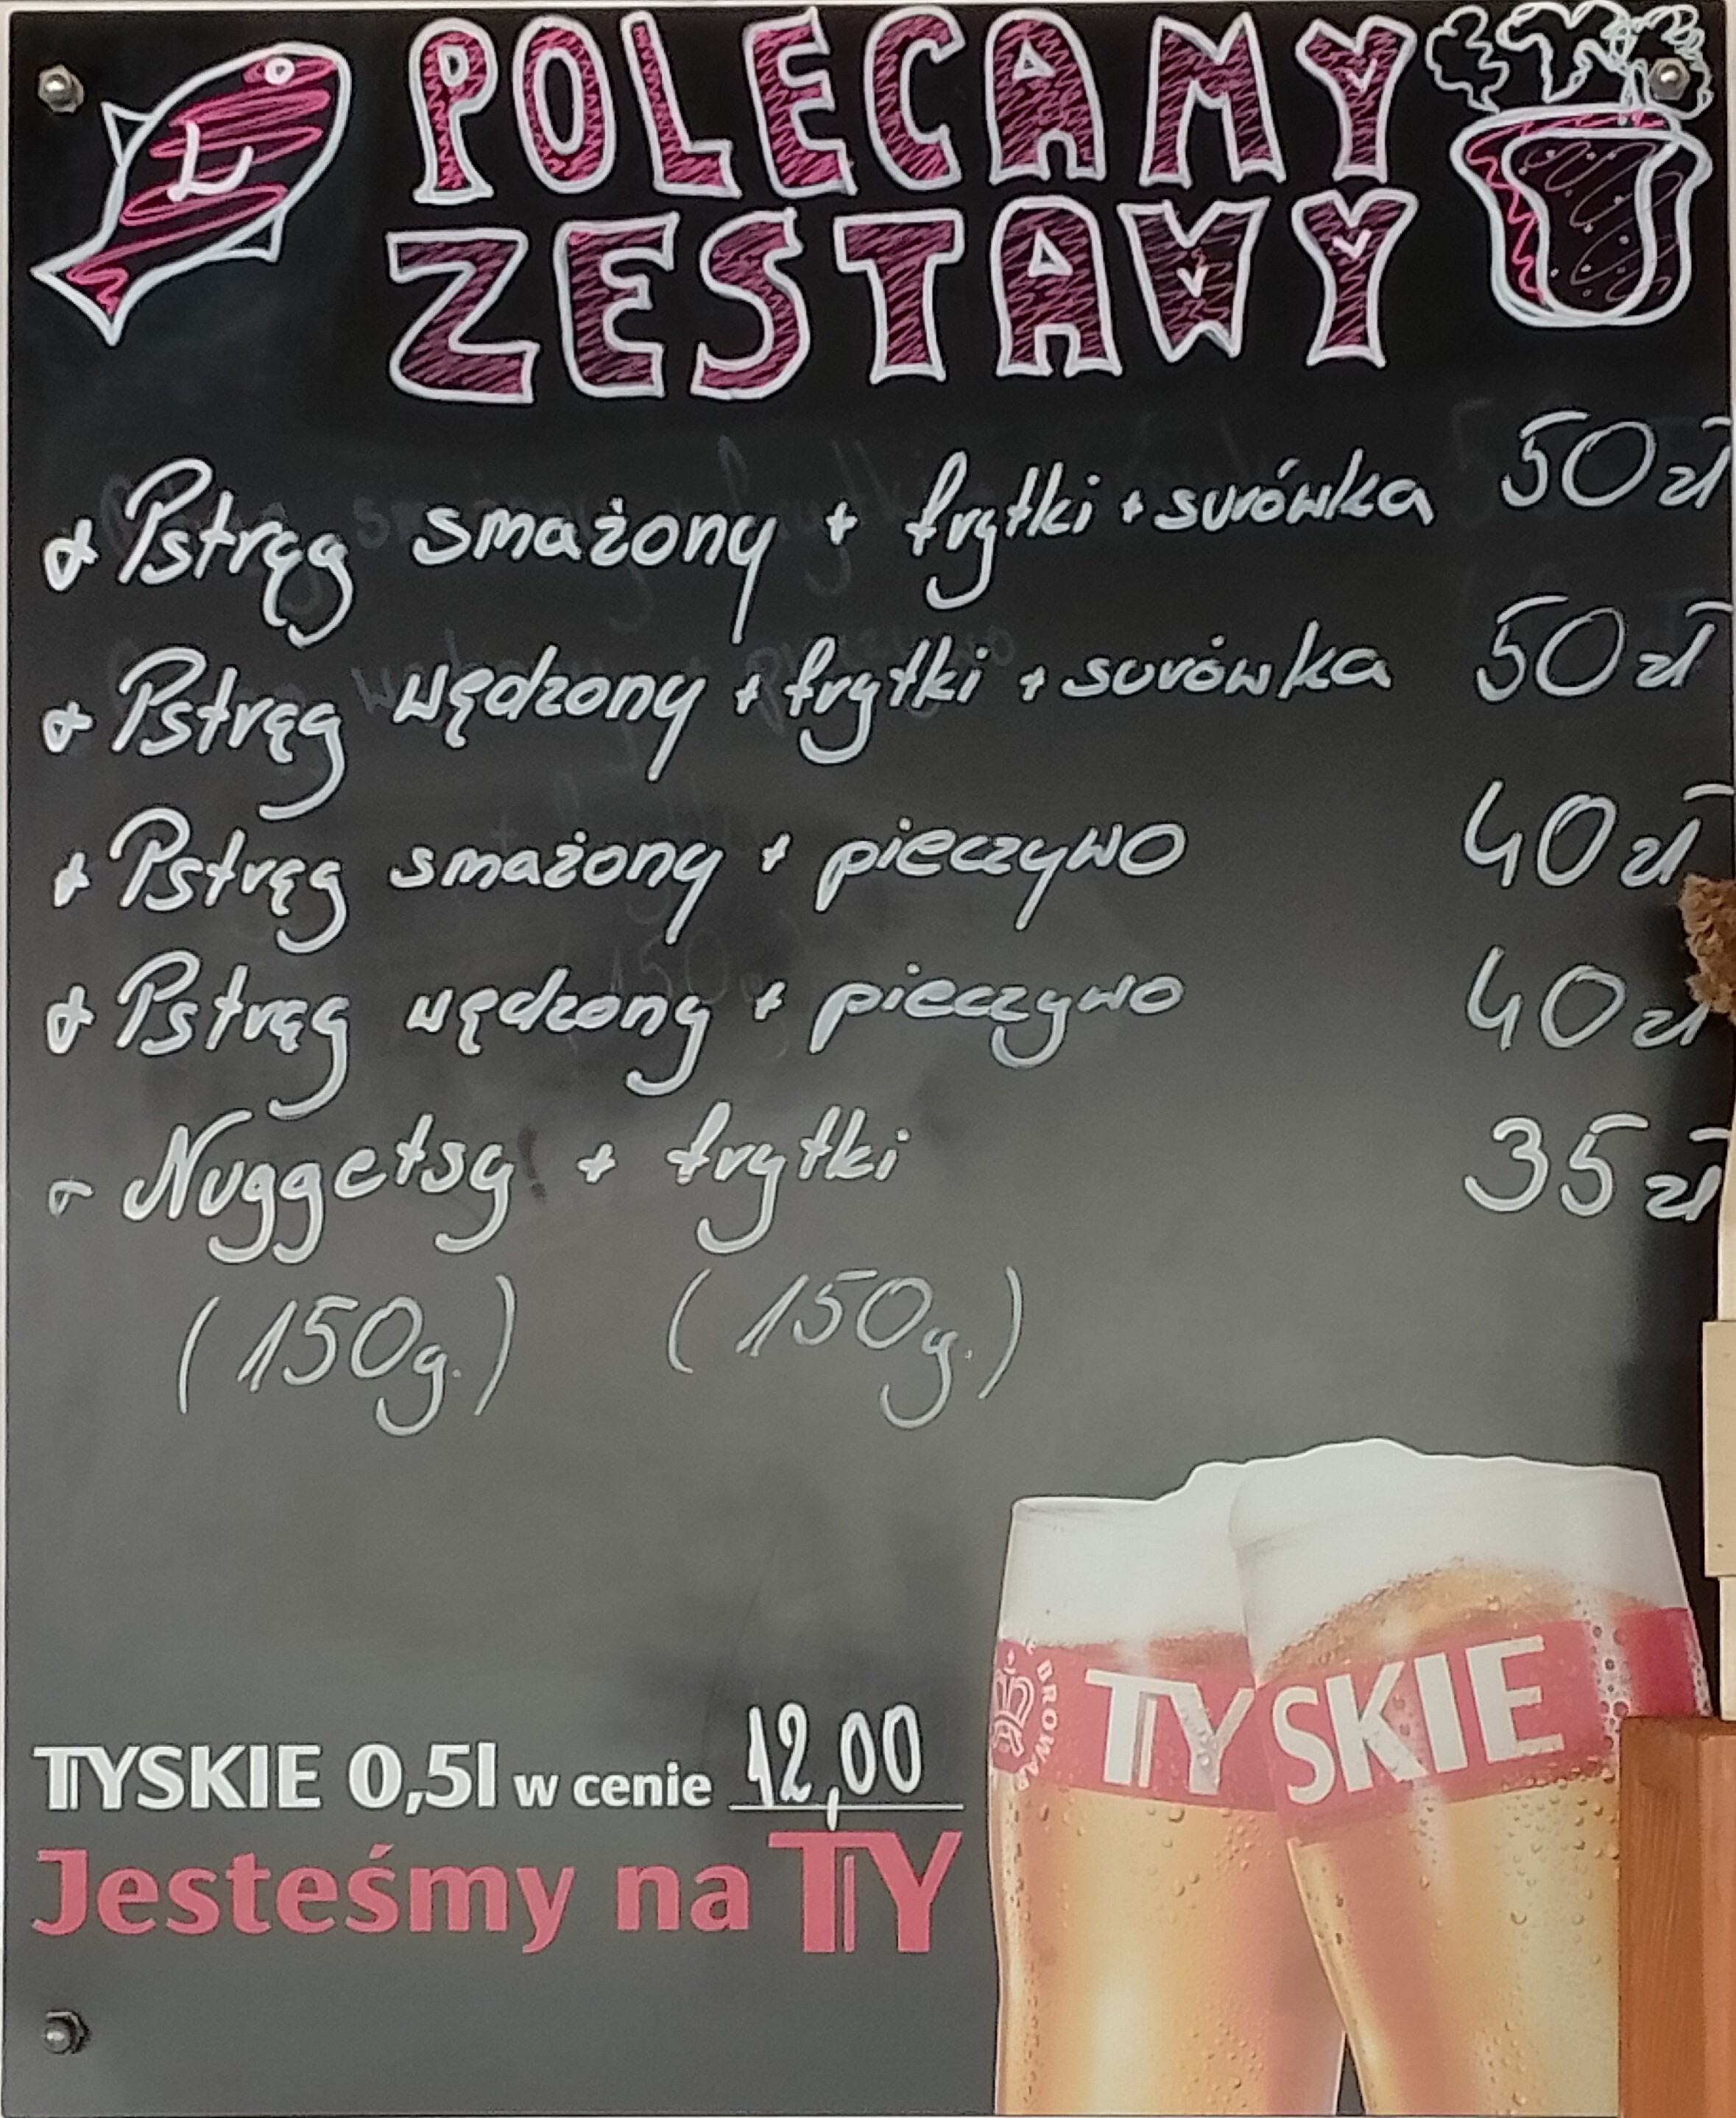 POLECAMY
ZESTAWY
+ Pstrąg smażony + frytki + surówka 50 zł
+ Pstrąg wędzony + frytki + surówka 50 zł
+ Pstrąg smażony + pieczywo 40 zł
+ Pstrąg wędzony + pieczywo 40 zł
- Nuggetsy + frytki 35 zł
(150g.) (150g.)
BROWAR
TYSKIE
TYSKIE 0,5l w cenie 12,00
Jesteśmy na TY